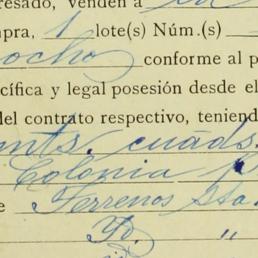 resado, venden a
mpra, 1 lote(s) Núm.(s)
ocho conforme al p
cífica y legal posesión desde el
del contrato respectivo, teniend
mts. cuads.
Colonia
e Terrenos Sta
Yo. "